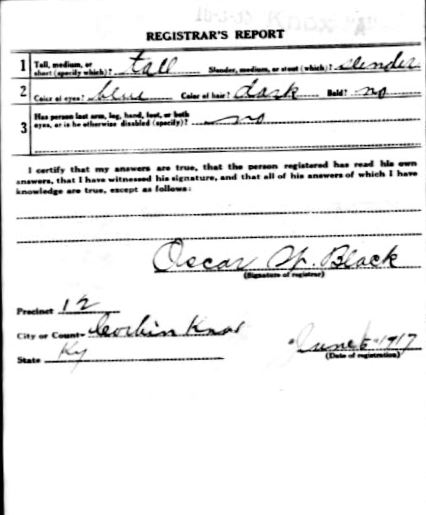 REGISTRAR'S REPORT
1 Tall, medium, or short (specify which)? tall Slender, medium, or stout (which)? slender
2 Color of eyes? blue Color of hair? dark Bald? no
3 Has person lost arm, leg, hand, foot, or both eyes, or is he otherwise disabled (specify)? no
I certify that my answers are true, that the person registered has read his own
answers, that I have witnessed his signature, and that all of his answers of which I have
knowledge are true, except as follows:
Oscar W. Black
(Signature of registrar)
Precinct 12
City or County Corbin Knox
State Ky
June 5 1917
(Date of registration)